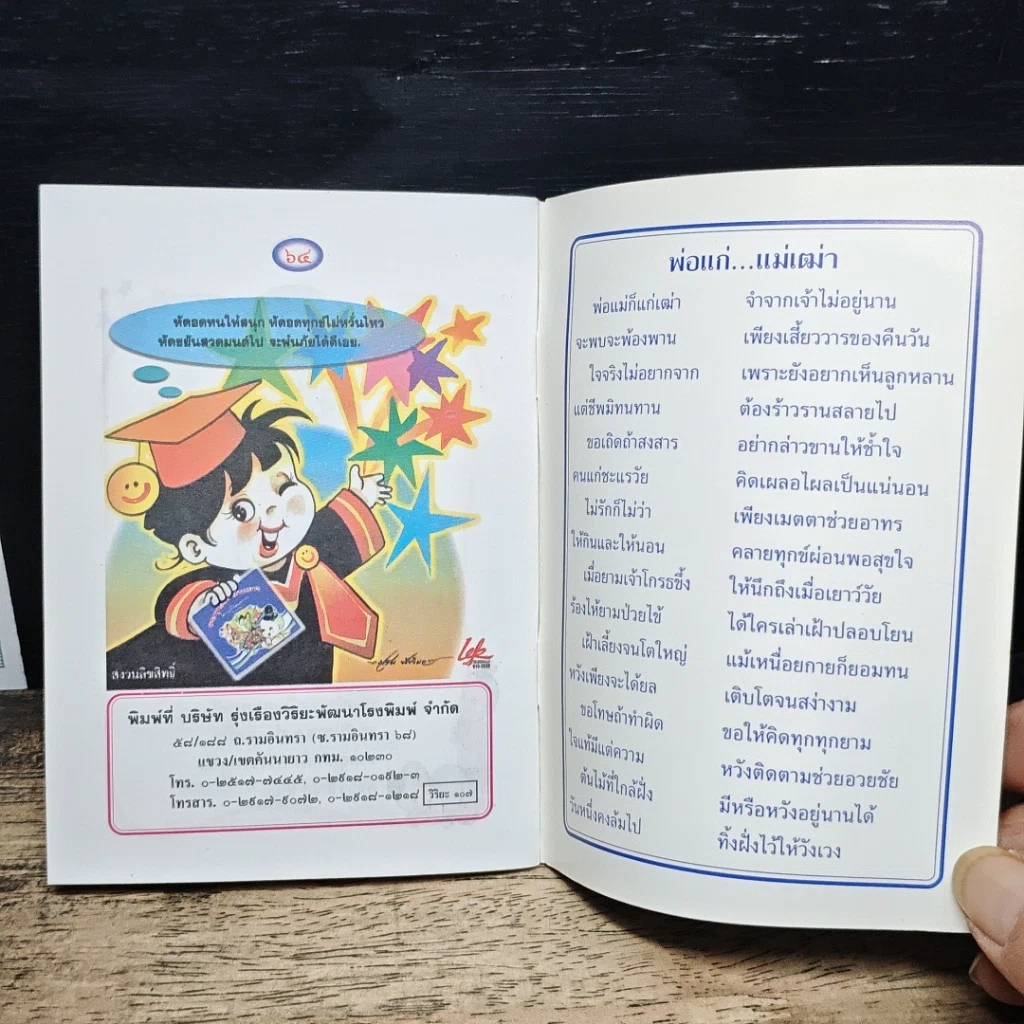 ๖๔
หัดอดทนให้สนุก หัดอดทุกข์ไม่หวั่นไหว
หัดขยันสวดมนต์ไป จะพ้นภัยได้ดีเอย.
สงวนลิขสิทธิ์
Lek
พิมพ์ที่ บริษัท รุ่งเรืองวิริยะพัฒนาโรงพิมพ์ จำกัด
๕๘/๑๘๘ ถ.รามอินทรา (ซ.รามอินทรา ๖๘)
แขวง/เขตคันนายาว กทม. ๑๐๒๓๐
โทร. ๐-๒๕๑๗-๗๔๔๕, ๐-๒๙๑๘-๐๑๙๒-๓
โทรสาร. ๐-๒๙๑๗-๙๐๗๒, ๐-๒๙๑๘-๑๒๑๘ วิริยะ ๑๐๗
พ่อแก่...แม่เฒ่า
พ่อแม่ก็แก่เฒ่า จำจากเจ้าไม่อยู่นาน
จะพบจะพ้องพาน เพียงเสี้ยววารของคืนวัน
ใจจริงไม่อยากจาก เพราะยังอยากเห็นลูกหลาน
แต่ชีพมิทนทาน ต้องร้าวรานสลายไป
ขอเถิดถ้าสงสาร อย่ากล่าวขานให้ช้ำใจ
คนแก่ชะแรวัย คิดเผลอไผลเป็นแน่นอน
ไม่รักก็ไม่ว่า เพียงเมตตาช่วยอาทร
ให้กินและให้นอน คลายทุกข์ผ่อนพอสุขใจ
เมื่อยามเจ้าโกรธขึ้ง ให้นึกถึงเมื่อเยาว์วัย
ร้องไห้ยามป่วยไข้ ได้ใครเล่าเฝ้าปลอบโยน
เฝ้าเลี้ยงจนโตใหญ่ แม้เหนื่อยกายก็ยอมทน
หวังเพียงจะได้ยล เติบโตจนสง่างาม
ขอโทษถ้าทำผิด ขอให้คิดทุกทุกยาม
ใจแท้มีแต่ความ หวังติดตามช่วยอวยชัย
ต้นไม้ที่ใกล้ฝั่ง มีหรือหวังอยู่นานได้
วันหนึ่งคงล้มไป ทิ้งฝั่งไว้ให้วังเวง